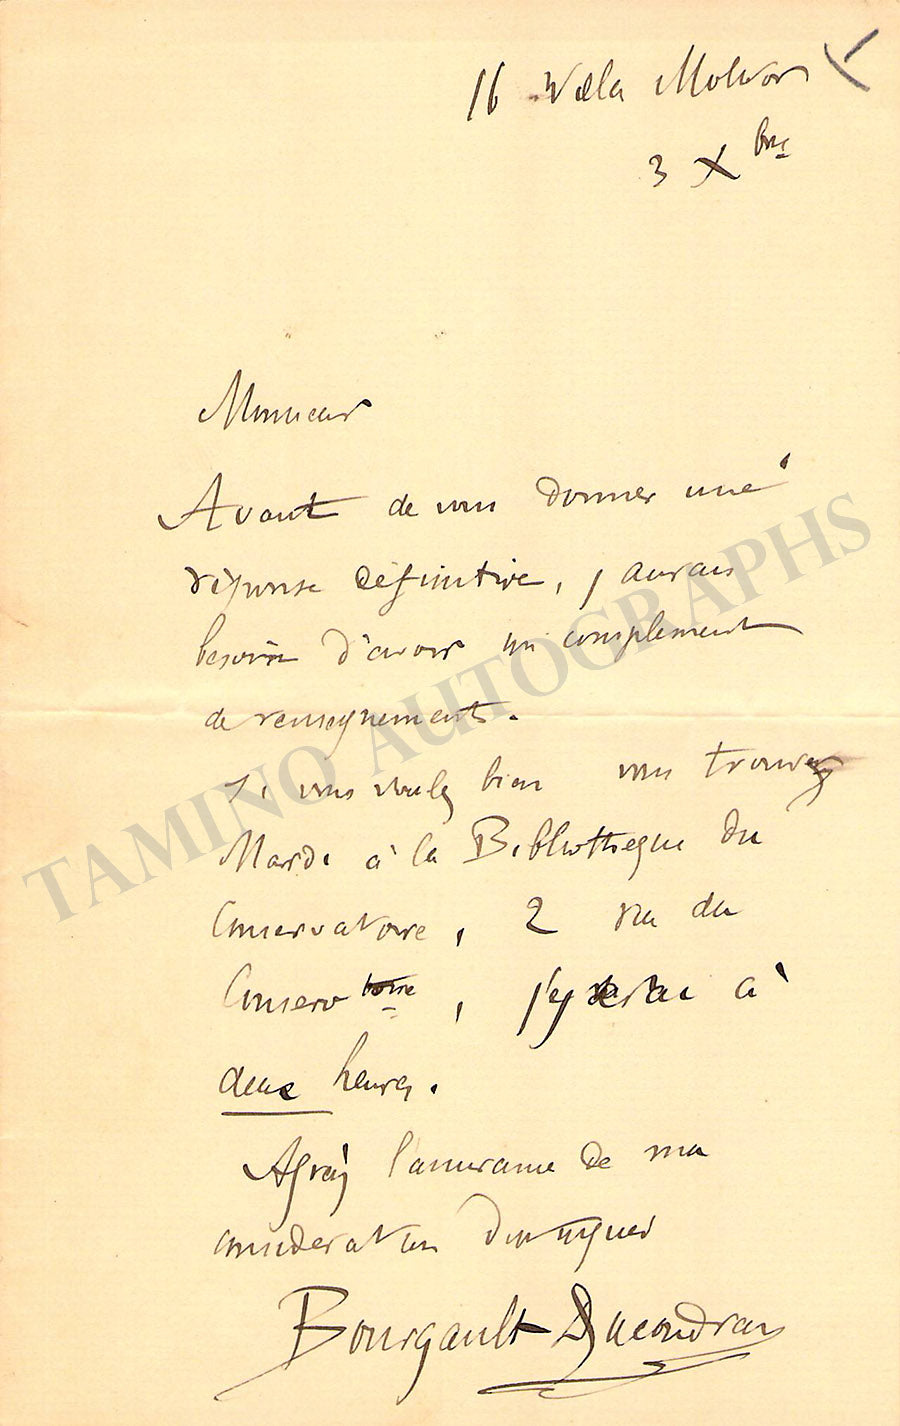 16 Villa Molitor
3 Xbre
Monsieur
Avant de vous donner une
réponse définitive, j'aurais
besoin d'avoir un complément
de renseignements.
Si vous voulez bien vous trouver
Mardi à la Bibliothèque du
Conservatoire, 2 rue du
Conservtoire, j'y serai à
deux heures.
Agréez l'assurance de ma
considération distinguée
Bourgault-Ducoudray
TAMINO AUTOGRAPHS